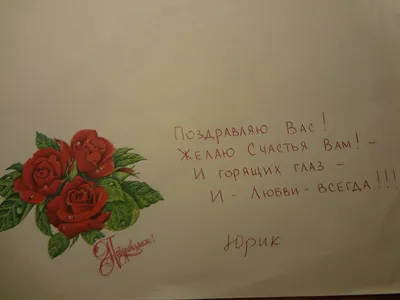 Поздравляю Вас!
Желаю Счастья Вам! -
И горящих глаз -
И - Любви - всегда!!!
Юрик
Поздравляю!